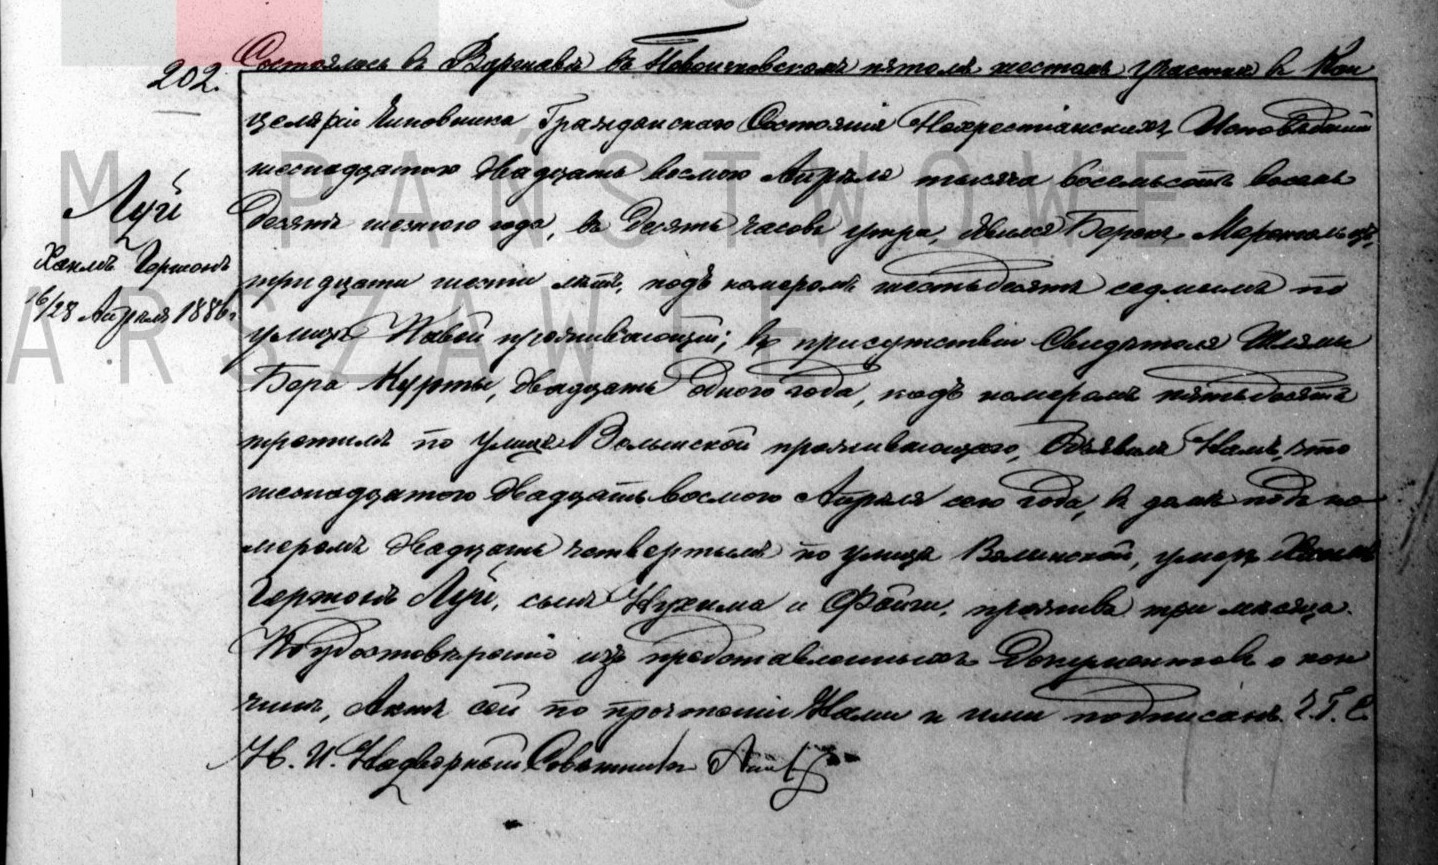 202.
Состоялось въ Варшавѣ въ пятомъ шестомъ участкѣ въ Кан
целяріи Чиновника Гражданскаго Состоянія Нехрестіанскихъ Исповѣданій
шеснадцатаго двадцать восьмаго Апрѣля тысяча восемьсотъ восемь
десятъ шестого года, въ десять часовъ утра, явился Борохъ
тридцати шести лѣтъ, подъ номеромъ шестьдесятъ седмымъ по
улицѣ проживающій; въ присутствіи Свидѣтеля Шлямы
Бера двадцать одного года, подъ номеромъ пятьдесятъ
третимъ по улицѣ Волынской проживающаго, Объявилъ Намъ, что
шеснадцатаго двадцать восьмаго Апрѣля сего года, въ домѣ подъ но
меромъ двадцать четвертымъ по улицѣ Волинской, умеръ Хаимъ
Гершонъ Луй, сынъ Нухима и Фейги, проживъ три мѣсяца.
По удостовѣреніи изъ представленныхъ Документовъ о кон
чинѣ, Актъ сей по прочтеніи Нами и ими подписанъ. Ч. Г. С.
Н. И. Надворный Совѣтникъ
Луй
Хаимъ Гершонъ
16/28 Апрѣля 1886 г.
M PAŃSTWOWE
ARSZAWIE